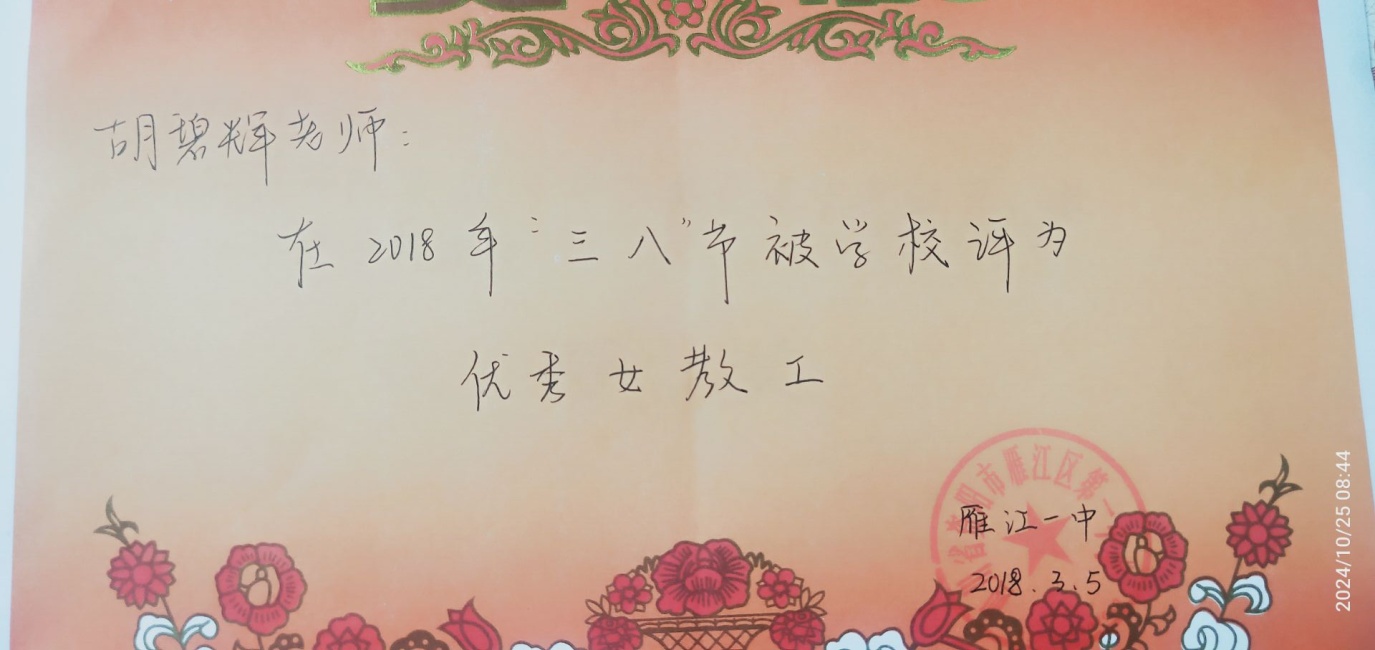 胡碧辉老师：
在2018年“三八”节被学校评为
优秀女教工
省资阳市雁江区第一
雁江一中
2018.3.5
2024/10/25 08:44